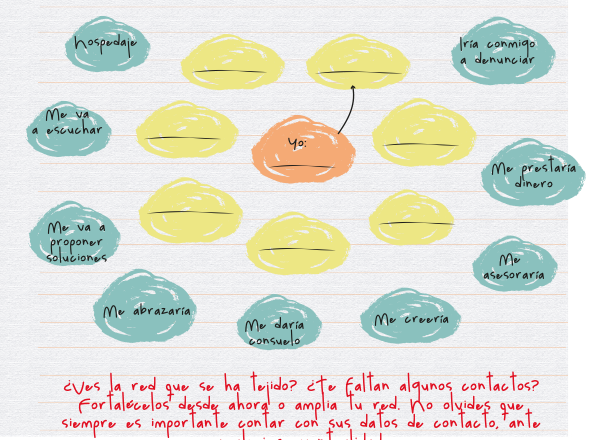 hospedaje
Iría conmigo
a denunciar
Me va
a escuchar
Yo:
Me prestaría
dinero
Me va a
proponer
soluciones
Me
asesoraría
Me abrazaría
Me daría
consuelo
Me creería
¿Ves la red que se ha tejido? ¿Te faltan algunos contactos?
Fortalécelos desde ahora o amplía tu red. No olvides que
siempre es importante contar con sus datos de contacto, ante